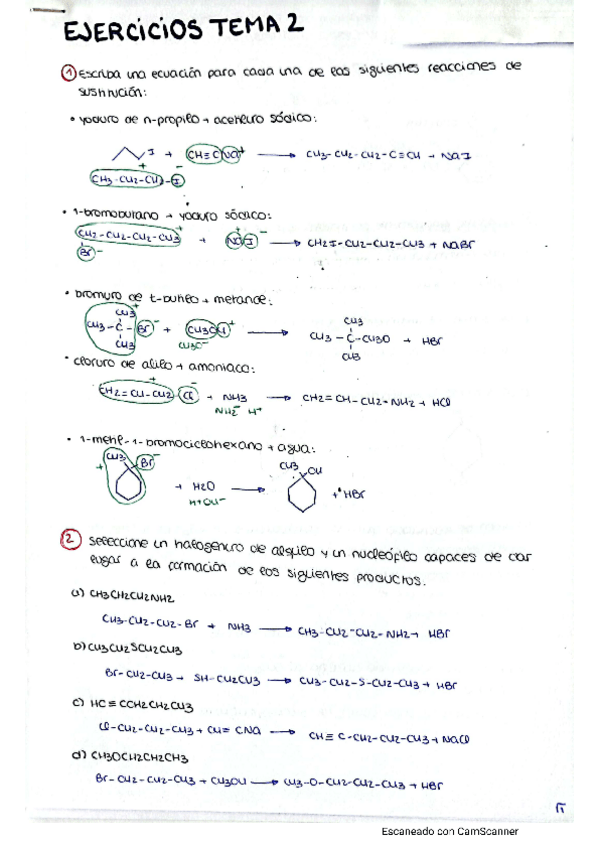 EJERCICIOS TEMA 2
① Escriba una ecuación para cada una de las siguientes reacciones de
sustitución:
• yoduro de n-propilo + acetiluro sódico:
I + CH≡CNa⁺ → CH3-CH2-CH2-C≡CH + NaI
CH3-CH2-CH2-I
• 1-bromobutano + yoduro sódico:
CH2-CH2-CH2-CH3 + NaI → CH2I-CH2-CH2-CH3 + NaBr
Br⁻
• bromuro de t-butilo + metanol:
CH3 CH3
CH3-C-Br⁻ + CH3OH → CH3-C-CH3O + HBr
CH3 CH3O⁻ CH3
• cloruro de alilo + amoniaco:
CH2=CH-CH2-Cl + NH3 → CH2=CH-CH2-NH2 + HCl
NH2⁻ H⁺
• 1-metil-1-bromociclohexano + agua:
CH3 Br⁻ CH3 OH
+ H2O → + HBr
H+OH⁻
② Seleccione un halogenuro de alquilo y un nucleófilo capaces de dar
lugar a la formación de los siguientes productos.
a) CH3CH2CH2NH2
CH3-CH2-CH2-Br + NH3 → CH3-CH2-CH2-NH2 + HBr
b) CH3CH2SCH2CH3
Br-CH2-CH3 + SH-CH2CH3 → CH3-CH2-S-CH2-CH3 + HBr
c) HC≡CCH2CH2CH3
Cl-CH2-CH2-CH3 + CH≡CNa → CH≡C-CH2-CH2-CH3 + NaCl
d) CH3OCH2CH2CH3
Br-CH2-CH2-CH3 + CH3OH → CH3-O-CH2-CH2-CH3 + HBr
Escaneado con CamScanner